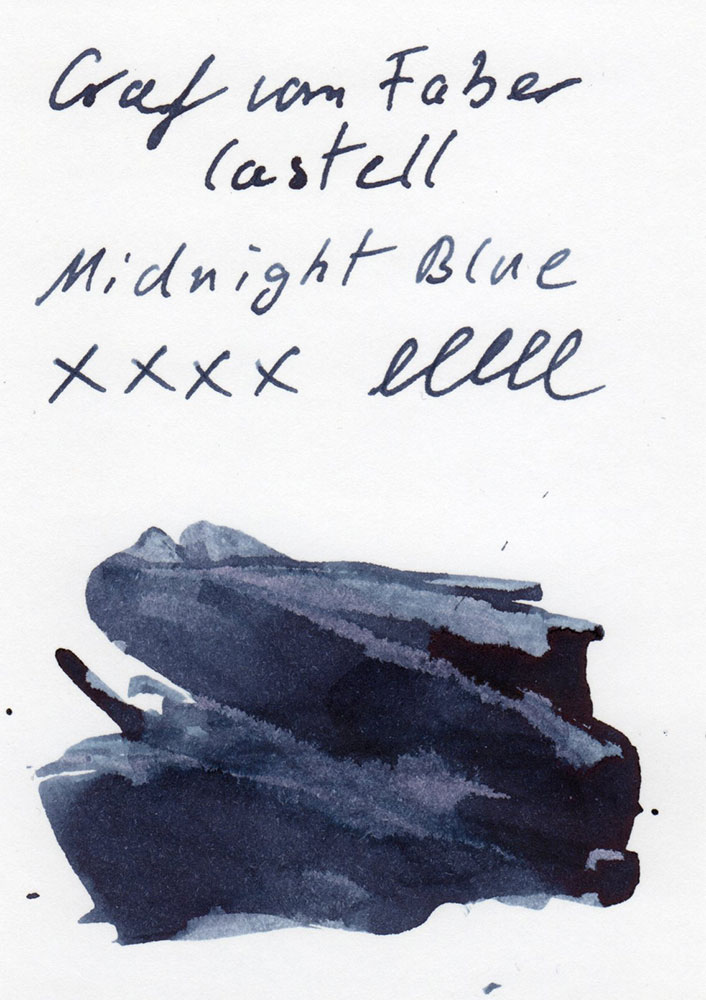 Graf von Faber
Castell
Midnight Blue
xxxx eeeee